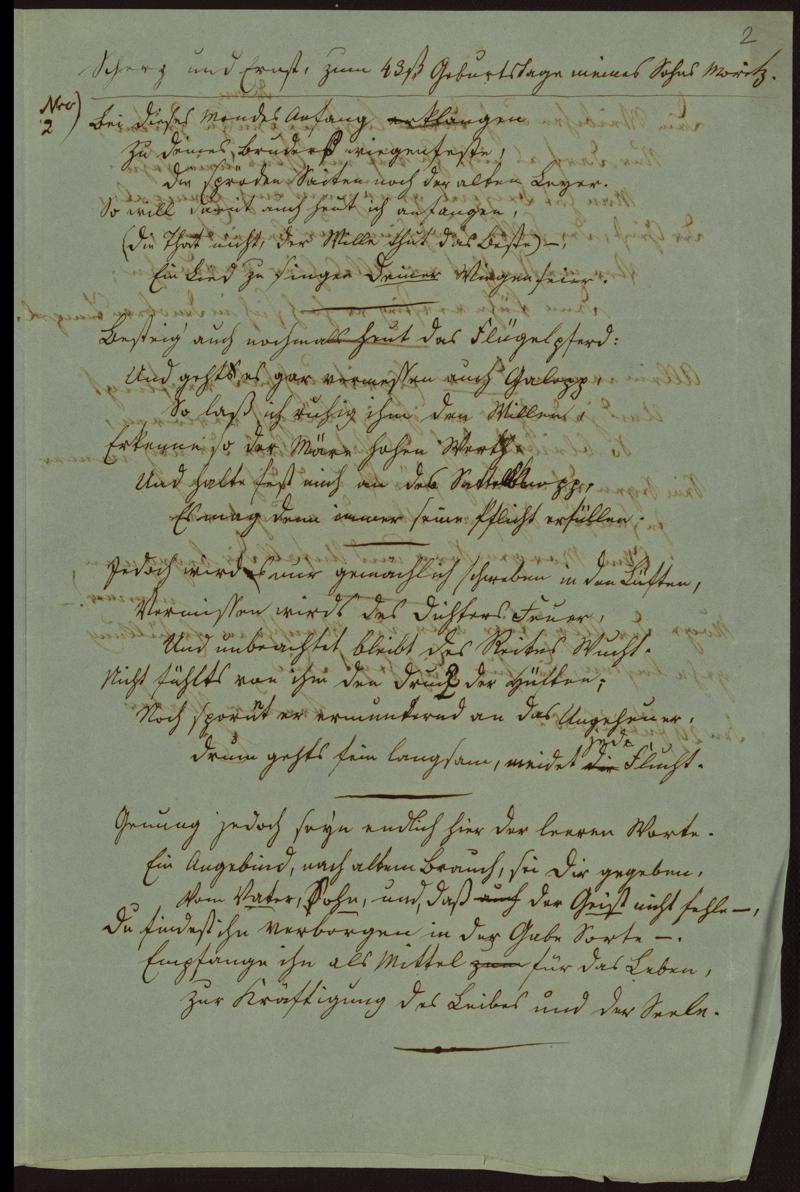 2
Scherz und Ernst, zum 43st Geburtstage meines Sohns Moritz.
Nro 2) Bei dieses Mondes Anfang erklangen
Zu deines Bruders Wiegenfeste,
Die spröden Saiten noch der alten Leyer.
So will damit auch heut ich anfangen,
(Die That nicht, der Wille thut das Beste) —,
Ein Lied zu singen Deiner Wiegenfeier.
Besteig' auch nochmals heut das Flügelpferd:
Und gehts es gar vermessen auch Galopp,
So laß ich ruhig ihm den Willen,
Erkenne so der Märe hohen Werth.
Und halte fest mich an des Sattelknopp,
Es mag denn immer seine Pflicht erfüllen.
Jedoch wird es nur gemächlich schweben in den Lüften,
Vermissen wirds des Dichters Feuer,
Und unbeachtet bleibt des Reiters Wucht.
Nicht fühlts von ihm den Druck der Hüften;
Noch spornt er ermunternd an das Ungeheuer,
Drum gehts fein langsam, meidet die jede Flucht.
Genung jedoch seyn endlich hier der leeren Worte.
Ein Angebind, nach altem Brauch, sei Dir gegeben,
Vom Vater, Sohn, und, daß auch der Geist nicht fehle —,
Du findest ihn verborgen in der Gabe Sorte —.
Empfange ihn als Mittel zum für das Leben,
Zur Kräftigung des Leibes und der Seele.